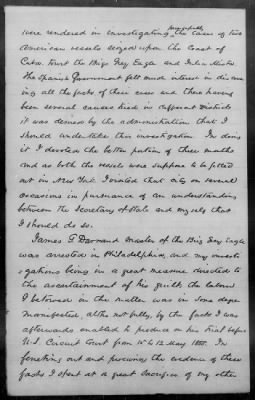 were rendered in investigating the cases of two
American vessels seized upon the Coast of
Cuba. To wit the Brigs Grey Eagle and Julia
The Spanish Government felt much interest in discov-
ering all the facts of these cases and there having
been several causes tried in different Districts
it was desired by the administration that I
should undertake this investigation. In doing
it I devoted the better portion of three months
and as both the vessels were supposed to be fitted
out in New York I visited that city on several
occasions in pursuance of an understanding
between the Secretary of State and myself that
I should do so.
James G Darnaud Master of the Brig Grey Eagle
was arrested in Philadelphia, and my investi-
gations being in a great measure directed to
the ascertainment of his guilt the labour
I bestowed in the matter was in some degree
manifested, altho not fully, by the facts I was
afterwards enabled to produce on his trial before
U.S. Circuit Court from to 12 May In
ferreting out and procuring the evidence of these
facts I spent at a great sacrifice of my other